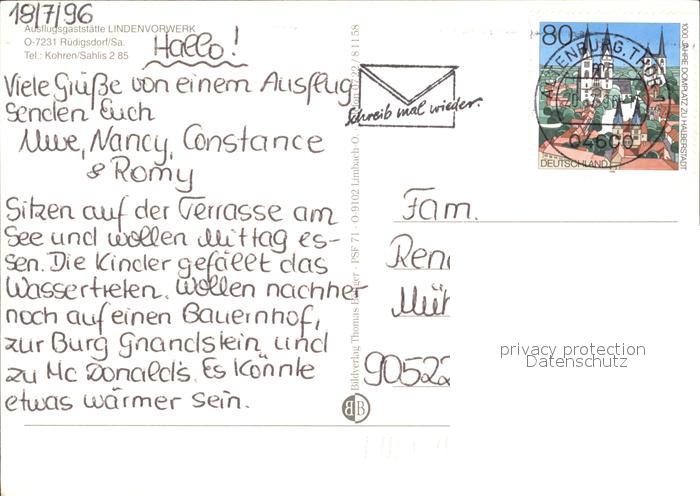 18/7/96
Ausflugsgaststätte LINDENVORWERK
O-7231 Rüdigsdorf/Sa.
Tel.: Kohren/Sahlis 2 85
Hallo!
Viele Grüße von einem Ausflug
senden Euch
Uwe, Nancy, Constance
& Romy
Sitzen auf der Terrasse am
See und wollen Mittag es-
sen. Die Kinder gefällt das
Wassertreten. Wollen nachher
noch auf einen Bauernhof,
zur Burg Gnandstein und
zu Mc Donald's. Es könnte
etwas wärmer sein.
Bildverlag Thomas PSF 71 - O-9102 Limbach-O. 8 11 58
BB
Schreib mal wieder.
80
1000 JAHRE DOMPLATZ ZU HALBERSTADT
DEUTSCHLAND
ALTENBURG, THÜR
04600
Fam.
Ren
Mü
90522
privacy protection
Datenschutz